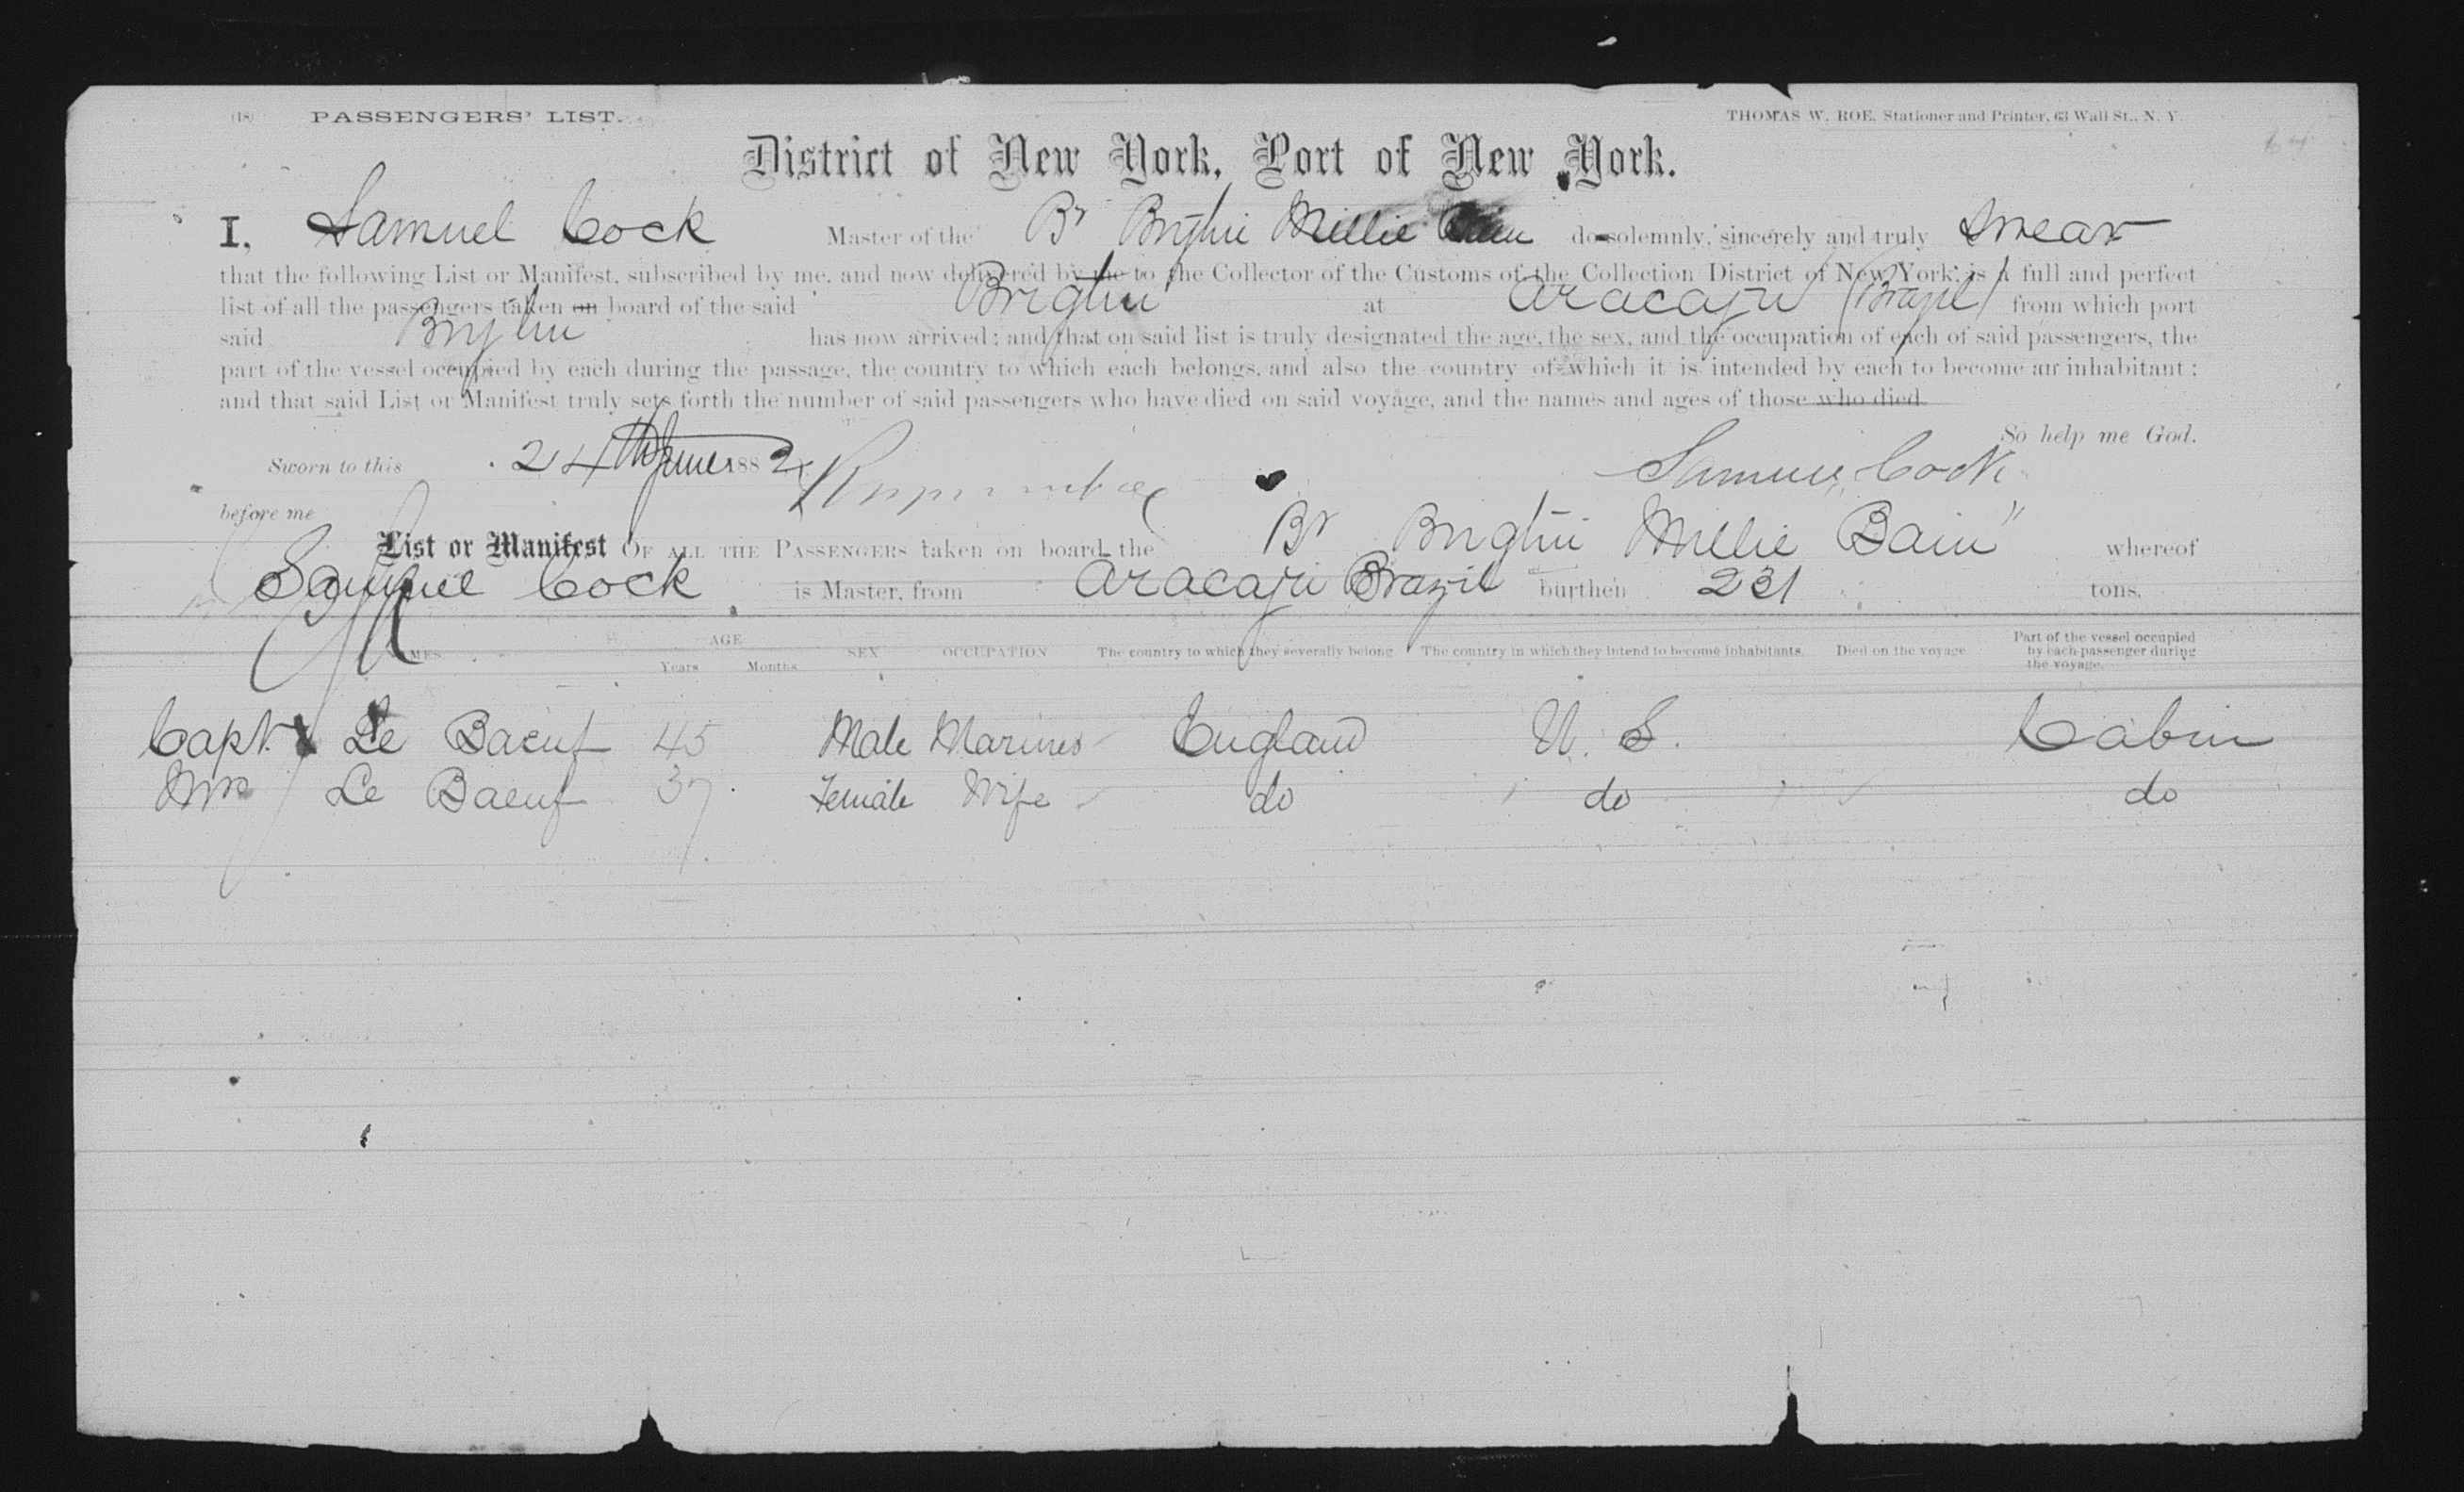 (18) PASSENGERS' LIST. THOMAS W. ROE, Stationer and Printer, 63 Wall St., N. Y.
District of New York, Port of New York.
I, Samuel Cock Master of the Br Brigtin Millie Bain do solemnly, sincerely and truly swear
that the following List or Manifest, subscribed by me, and now delivered by me to the Collector of the Customs of the Collection District of New York, is a full and perfect
list of all the passengers taken on board of the said Brigtin at Aracaju (Brazil) from which port
said Brigtin has now arrived; and that on said list is truly designated the age, the sex, and the occupation of each of said passengers, the
part of the vessel occupied by each during the passage, the country to which each belongs, and also the country of which it is intended by each to become an inhabitant;
and that said List or Manifest truly sets forth the number of said passengers who have died on said voyage, and the names and ages of those who died.
So help me God.
Sworn to this 24th June 1882 Samuel Cock
before me
List or Manifest OF ALL THE PASSENGERS taken on board the Br Brigtin Millie Bain" whereof
Samuel Cock is Master, from Aracaju Brazil burthen 231 tons.
NAMES AGE Years Months SEX OCCUPATION The country to which they severally belong The country in which they intend to become inhabitants. Died on the voyage Part of the vessel occupied by each passenger during the voyage.
Capt. Le Baeuf 45 Male Mariner England U. S. Cabin
Mrs Le Baeuf 37 Female Wife do do do